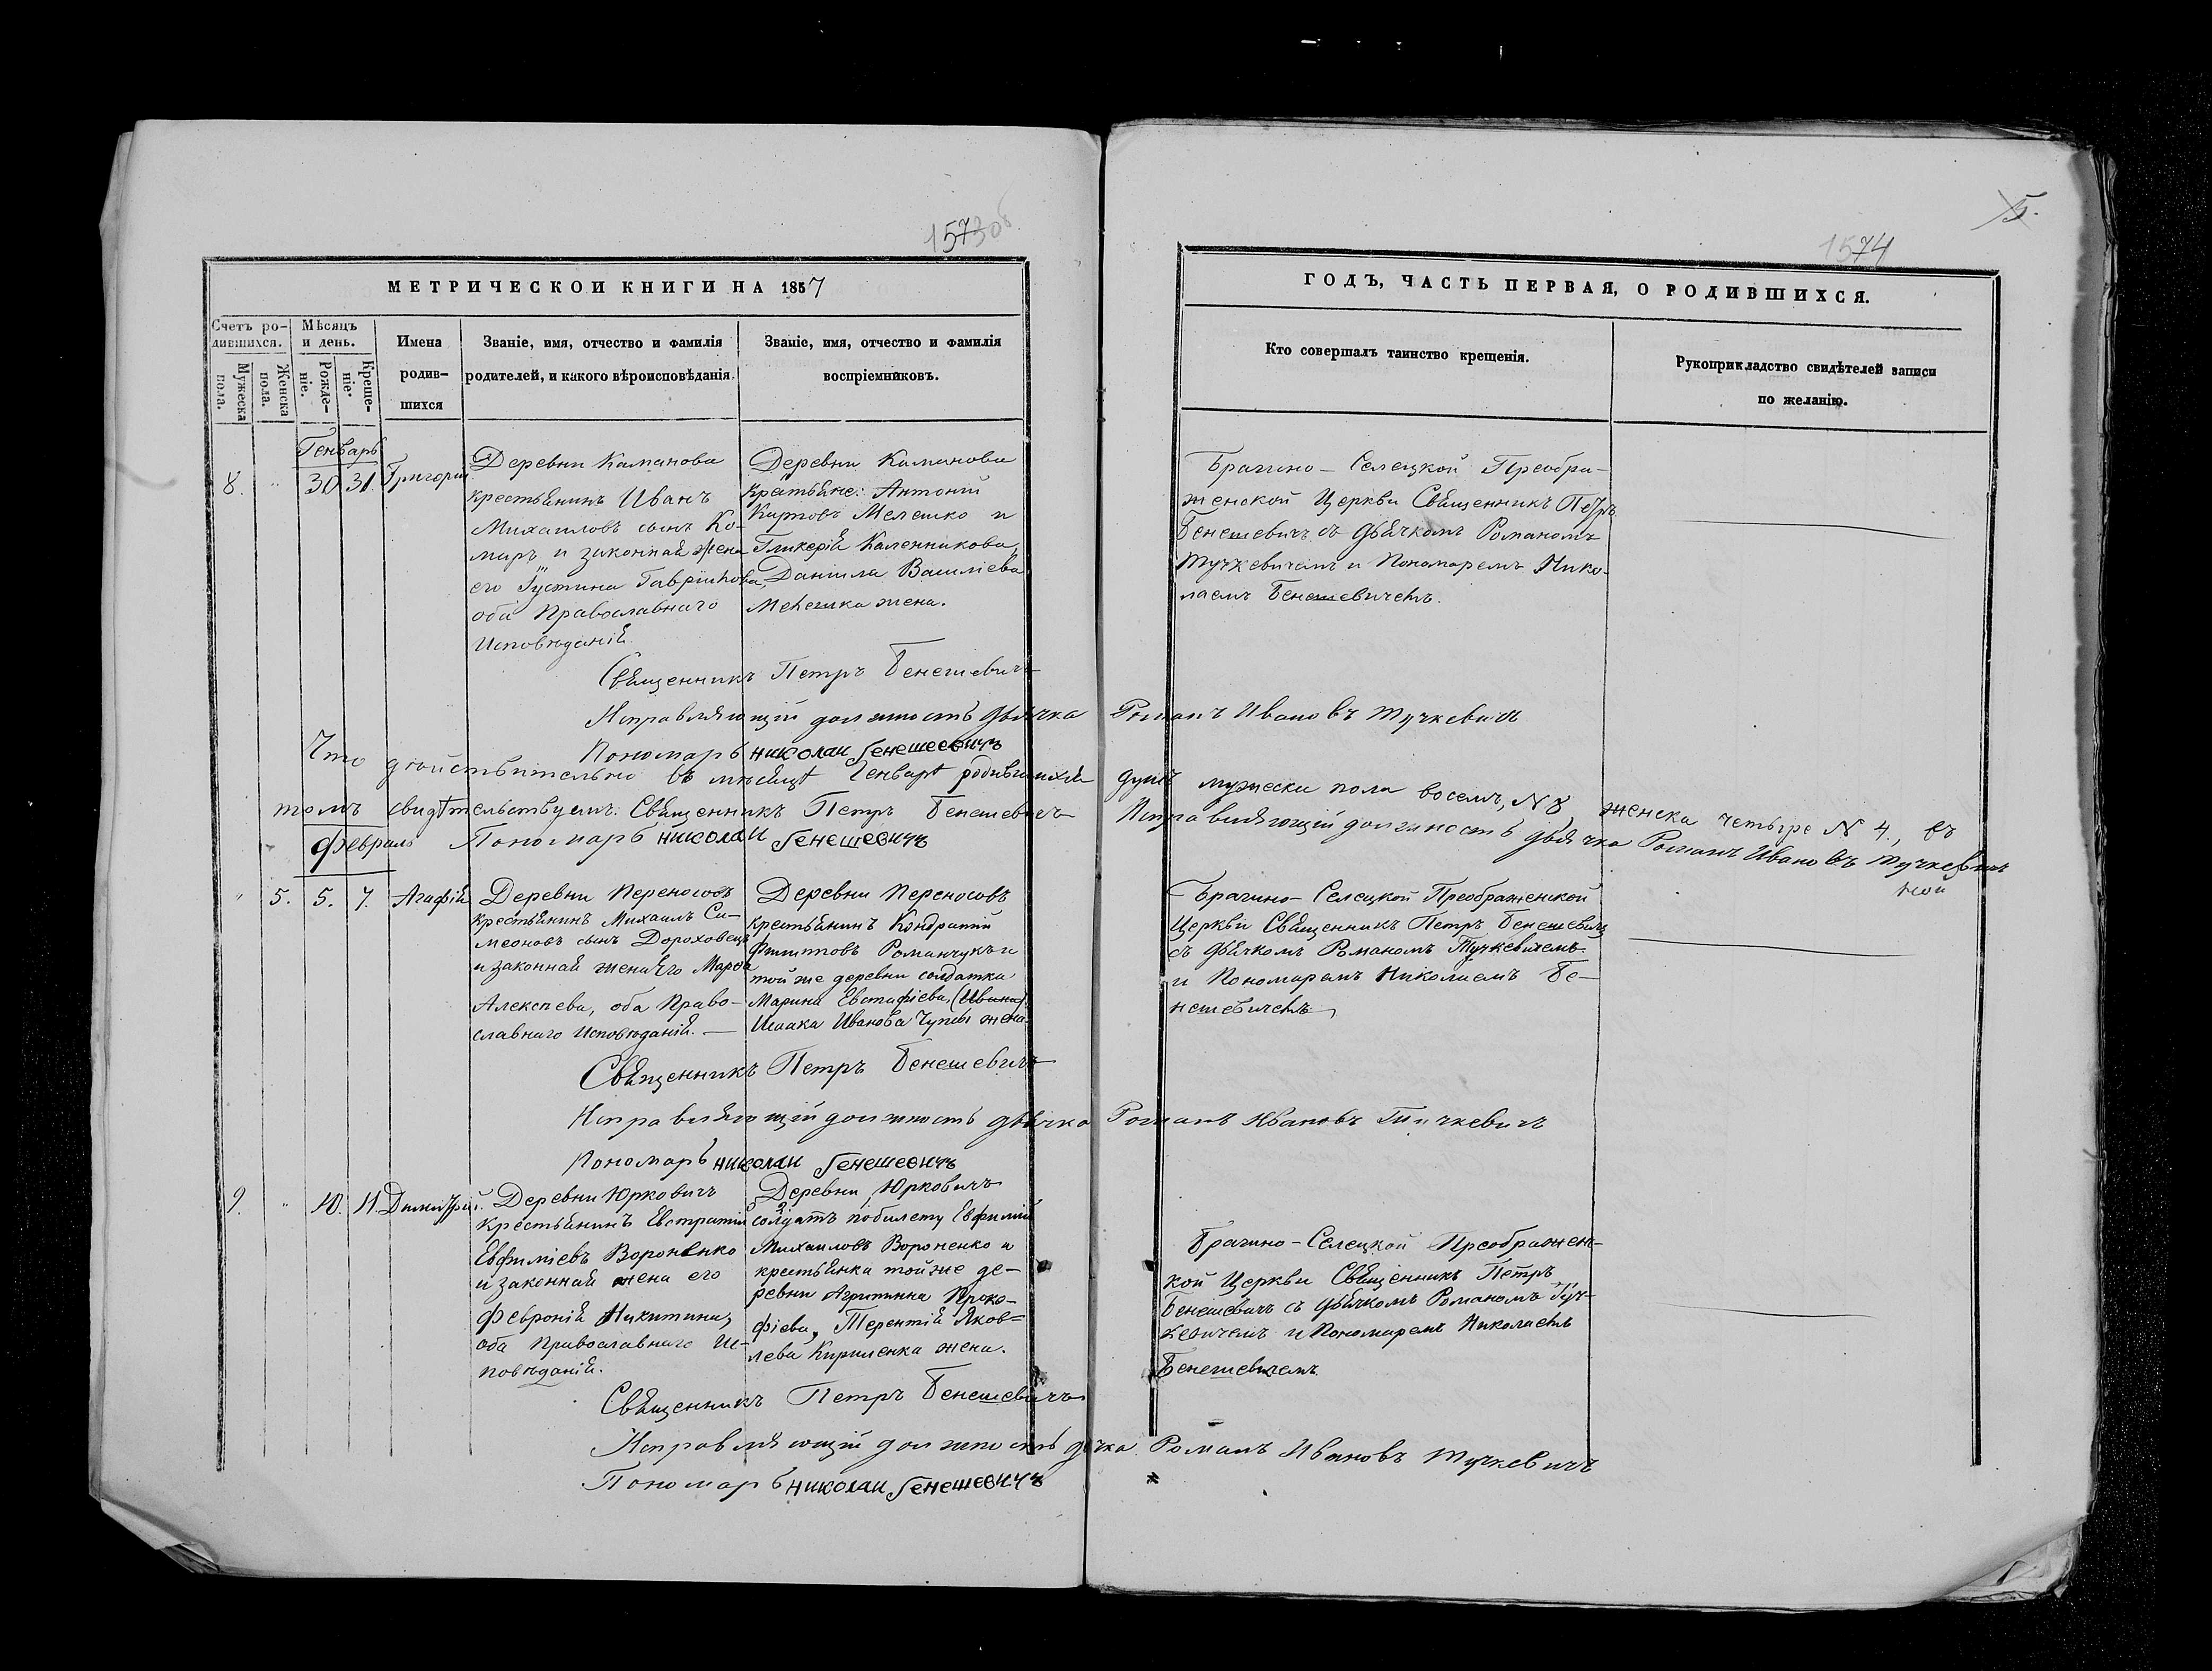 157306
МЕТРИЧЕСКОЙ КНИГИ НА 1857
Счетъ ро-
дившихся.
Мужеска пола.
Женска пола.
Мѣсяцъ
и день.
Рожде-
ніе.
Креще-
ніе.
Имена
родив-
шихся
Званіе, имя, отчество и фамилія
родителей, и какого вѣроисповѣданія.
Званіе, имя, отчество и фамилія
воспріемниковъ.
Генварь
8. " 30 31. Григорій.
Деревни Каманова
крестьянинъ Иванъ
Михаиловъ сынъ Ко-
маръ и законная жена
его Іустина Гавріилова,
оба Православнаго
Исповѣданія.
Деревни Каманова
крестьяне: Антоній
Карповъ Мелешко и
Гликерія Каленникова,
Даніила Василіева
Мелешка жена.
Священникъ Петръ Бенешевичъ
Исправляющій должность дьячка Романъ Ивановъ Тучкевичъ
Пономарь Николай Бенешевичъ
Что дѣйствительно въ мѣсяцѣ Генварѣ родившихся душъ мужеска пола восемь, N 8, женска четыре N 4., въ
томъ свидѣтельствуемъ: Священникъ Петръ Бенешевичъ Исправляющій должность дьячка Романъ Ивановъ Тучкевичъ
Пономарь Николай Бенешевичъ
Февраль
" 5. 5. 7. Агафія
Деревни Переносовъ
крестьянинъ Михаилъ Си-
меоновъ сынъ Дороховецъ
и законная жена его Марфа
Алексѣева, оба Право-
славнаго Исповѣданія. —
Деревни Переносовъ
крестьянинъ Кондратій
Филиповъ Романчукъ и
той же деревни солдатка
Марина Евстафіева, (Ивана)
Исаака Иванова Чупы жена.
Священникъ Петръ Бенешевичъ
Исправляющій должность дьячка Романъ Ивановъ Тучкевичъ
Пономарь Николай Бенешевичъ
9. " 10. 11. Димитрій.
Деревни Юрковичъ
крестьянинъ Евстратій
Евфиміевъ Вороненко
и законная жена его
Февронія Никитина,
оба Православнаго Ис-
повѣданія.
Деревни Юрковичъ
солдатъ по билету Евфимій
Михаиловъ Вороненко и
крестьянка той же де-
ревни Агрипинна Проко-
фіева, Терентія Яков-
лева Кириленка жена.
Священникъ Петръ Бенешевичъ
Исправляющій должность дячка Романъ Ивановъ Тучкевичъ
Пономарь Николай Бенешевичъ
5.
1574
ГОДЪ, ЧАСТЬ ПЕРВАЯ, О РОДИВШИХСЯ.
Кто совершалъ таинство крещенія.
Рукоприкладство свидѣтелей записи
по желанію.
Брагино-Селецкой Преобра-
женской Церкви Священникъ Петръ
Бенешевичъ съ дьячкомъ Романомъ
Тучкевичемъ и Пономаремъ Нико-
лаемъ Бенешевичемъ.
Брагино-Селецкой Преображенской
Церкви Священникъ Петръ Бенешевичъ
съ дьячкомъ Романомъ Тучкевичемъ
и Пономаремъ Николаемъ Бе-
нешевичемъ
Брагино-Селецкой Преображен-
кой Церкви Священникъ Петръ
Бенешевичъ съ дьячкомъ Романомъ Туч-
кевичемъ и Пономаремъ Николаемъ
Бенешевичемъ.